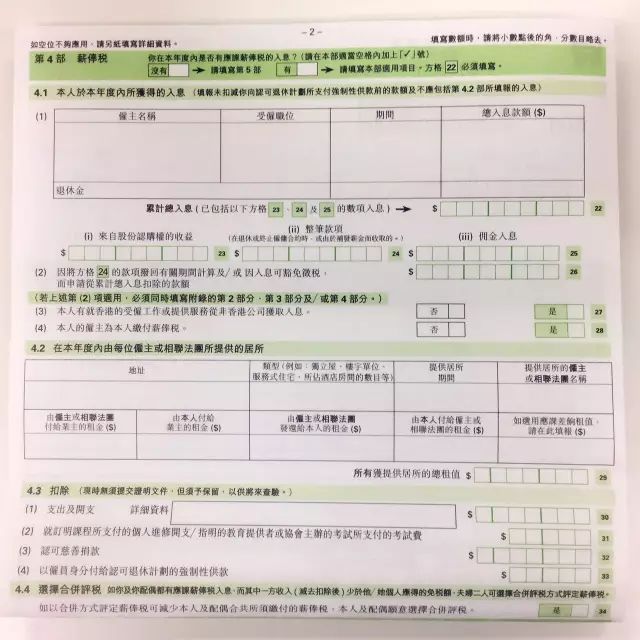 - 2 -
如空位不夠應用，請另紙填寫詳細資料。 填寫數額時，請將小數點後的角、分數目略去。
第 4 部 薪俸稅 你在本年度內是否有應課薪俸稅的入息？(請在本部適當空格內加上「✓」號)
沒有 → 請填寫第 5 部 有 → 請填寫本部適用項目。方格 22 必須填寫。
4.1 本人於本年度內所獲得的入息 (填報未扣減你向認可退休計劃所支付強制性供款前的款額及不應包括第 4.2 部所填報的入息)
(1) 僱主名稱 受僱職位 期間 總入息款額 ($)
退休金
累計總入息 (已包括以下方格 23、24 及 25 的數項入息) → $ 22
(i) 來自股份認購權的收益 (ii) 整筆款項 (iii) 佣金入息
(在退休或終止僱傭合約時，或由於補發薪金而收取的。)
$ 23 $ 24 $ 25
(2) 因將方格 24 的款項撥回有關期間計算及/或因入息可豁免徵稅， $ 26
而申請從累計總入息扣除的款額
(若上述第 (2) 項適用，必須同時填寫附錄的第 2 部分、第 3 部分及/或第 4 部分。)
(3) 本人有就香港的受僱工作或提供服務從非香港公司獲取入息。 否 是 27
(4) 本人的僱主為本人繳付薪俸稅。 否 是 28
4.2 在本年度內由每位僱主或相聯法團所提供的居所
地址 類型 (例如：獨立屋、樓宇單位、 提供居所 提供居所的僱主
服務式住宅、所佔酒店房間的數目等) 期間 或相聯法團名稱
由僱主或相聯法團 由本人付給 由僱主或相聯法團 由本人付給僱主或 如選用應課差餉租值，
付給業主的租金 ($) 業主的租金 ($) 發還給本人的租金 ($) 相聯法團的租金 ($) 請在此填報 ($)
所有獲提供居所的總租值 $ 29
4.3 扣除 (現時無須提交證明文件，但須予保留，以供將來查驗。)
(1) 支出及開支 詳細資料 $ 30
(2) 就訂明課程所支付的個人進修開支/指明的教育提供者或協會主辦的考試所支付的考試費 $ 31
(3) 認可慈善捐款 $ 32
(4) 以僱員身分付給認可退休計劃的強制性供款 $ 33
4.4 選擇合併評稅 如你及你配偶都有應課薪俸稅入息，而其中一方收入 (減去扣除後) 少於他/她個人應得的免稅額，夫婦二人可選擇合併評稅方式評定薪俸稅。
如以合併方式評定薪俸稅可減少本人及配偶合共所須繳付的薪俸稅，本人及配偶願意選擇合併評稅。 是 34